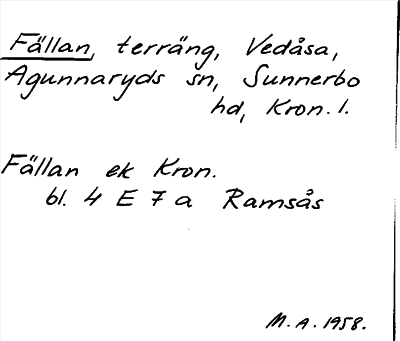 Fällan, terräng, Vedåsa,
Agunnaryds sn, Sunnerbo
hd, Kron. l.
Fällan ek Kron.
bl. 4 E 7 a Ramsås
M. A. 1958.